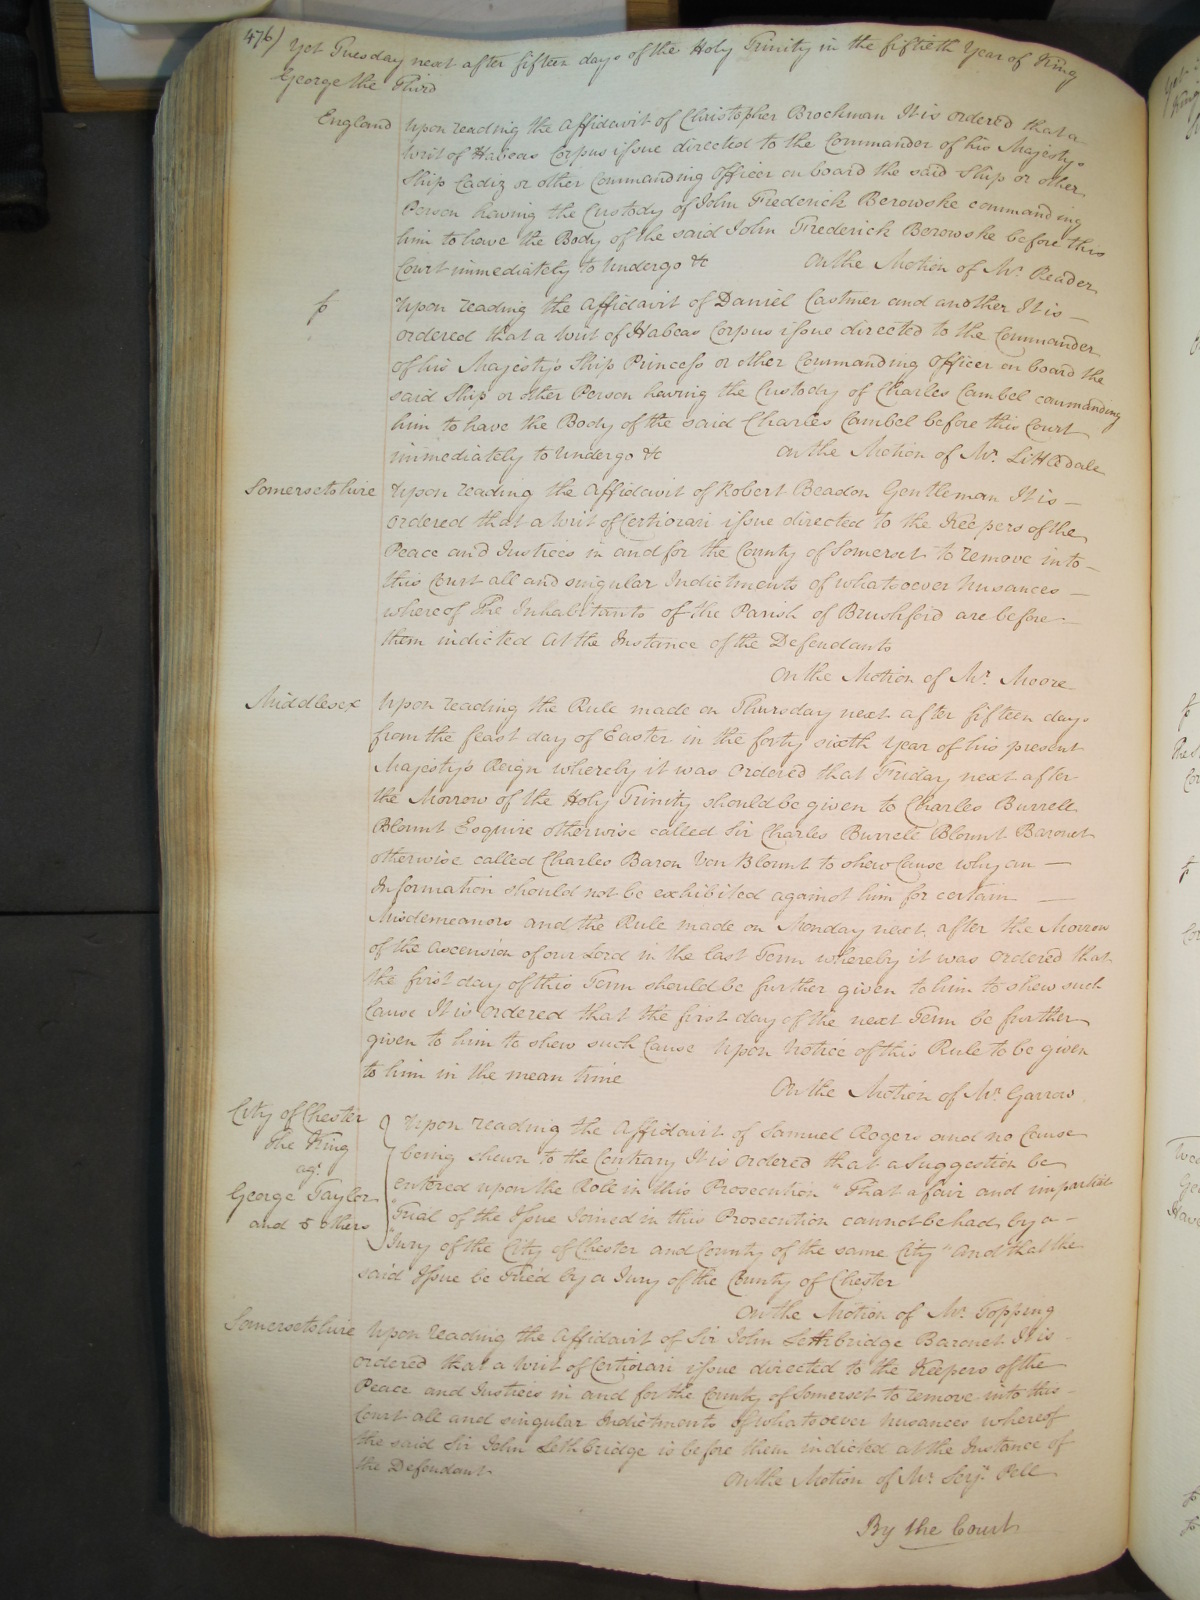 476) Yet Tuesday next after fifteen days of the Holy Trinity in the fiftieth Year of King
George the Third
England Upon reading the Affidavit of Christopher Brockman It is ordered that a
Writ of Habeas Corpus issue directed to the Commander of his Majestys
Ship Cadiz or other Commanding Officer on board the said Ship or other
Person having the Custody of John Frederick Berowske commanding
him to have the Body of the said John Frederick Berowske before this
Court immediately to undergo &c On the Motion of Mr. Reader
Upon reading the Affidavit of Daniel Castmer and another It is
ordered that a Writ of Habeas Corpus issue directed to the Commander
of his Majesty's Ship Princess or other Commanding Officer on board the
said Ship or other Person having the Custody of Charles Cambel commanding
him to have the Body of the said Charles Cambel before this Court
immediately to undergo &c On the Motion of Mr. Littledale
Somersetshire Upon reading the Affidavit of Robert Beadon Gentleman It is
ordered that a Writ of Certiorari issue directed to the Keepers of the
Peace and Justices in and for the County of Somerset to remove into
this Court all and singular Indictments of whatsoever Nusances
whereof The Inhabitants of the Parish of Brushford are before
them indicted At the Instance of the Defendants
On the Motion of Mr. Moore
Middlesex Upon reading the Rule made on Thursday next after fifteen days
from the feast day of Easter in the forty sixth Year of his present
Majesty's Reign whereby it was ordered that Friday next after
the Morrow of the Holy Trinity should be given to Charles Burrell
Blount Esquire otherwise called Sir Charles Burrell Blount Baronet
otherwise called Charles Baron Von Blount to shew Cause why an
Information should not be exhibited against him for certain
Misdemeanors and the Rule made on Monday next after the Morrow
of the Ascension of our Lord in the last Term whereby it was ordered that
the first day of this Term should be further given to him to shew such
Cause It is ordered that the first day of the next Term be further
given to him to shew such Cause Upon Notice of this Rule to be given
to him in the mean time
On the Motion of Mr. Garrow
City of Chester
The King
agt.
George Taylor
and 5 others
Upon reading the Affidavit of Samuel Rogers and no Cause
being shewn to the Contrary It is ordered that a Suggestion be
entered upon the Role in this Prosecution "That a fair and impartial
"Trial of the Issue Joined in this Prosecution cannot be had by a
"Jury of the City of Chester and County of the same City" And that the
said Issue be Tried by a Jury of the County of Chester
On the Motion of Mr. Topping
Somersetshire Upon reading the Affidavit of Sir John Lethbridge Baronet It is
ordered that a Writ of Certiorari issue directed to the Keepers of the
Peace and Justices in and for the County of Somerset to remove into this
Court all and singular Indictments of whatsoever Nusances whereof
the said Sir John Lethbridge is before them indicted at the Instance of
the Defendant
On the Motion of Mr. Serjt. Pell
By the Court